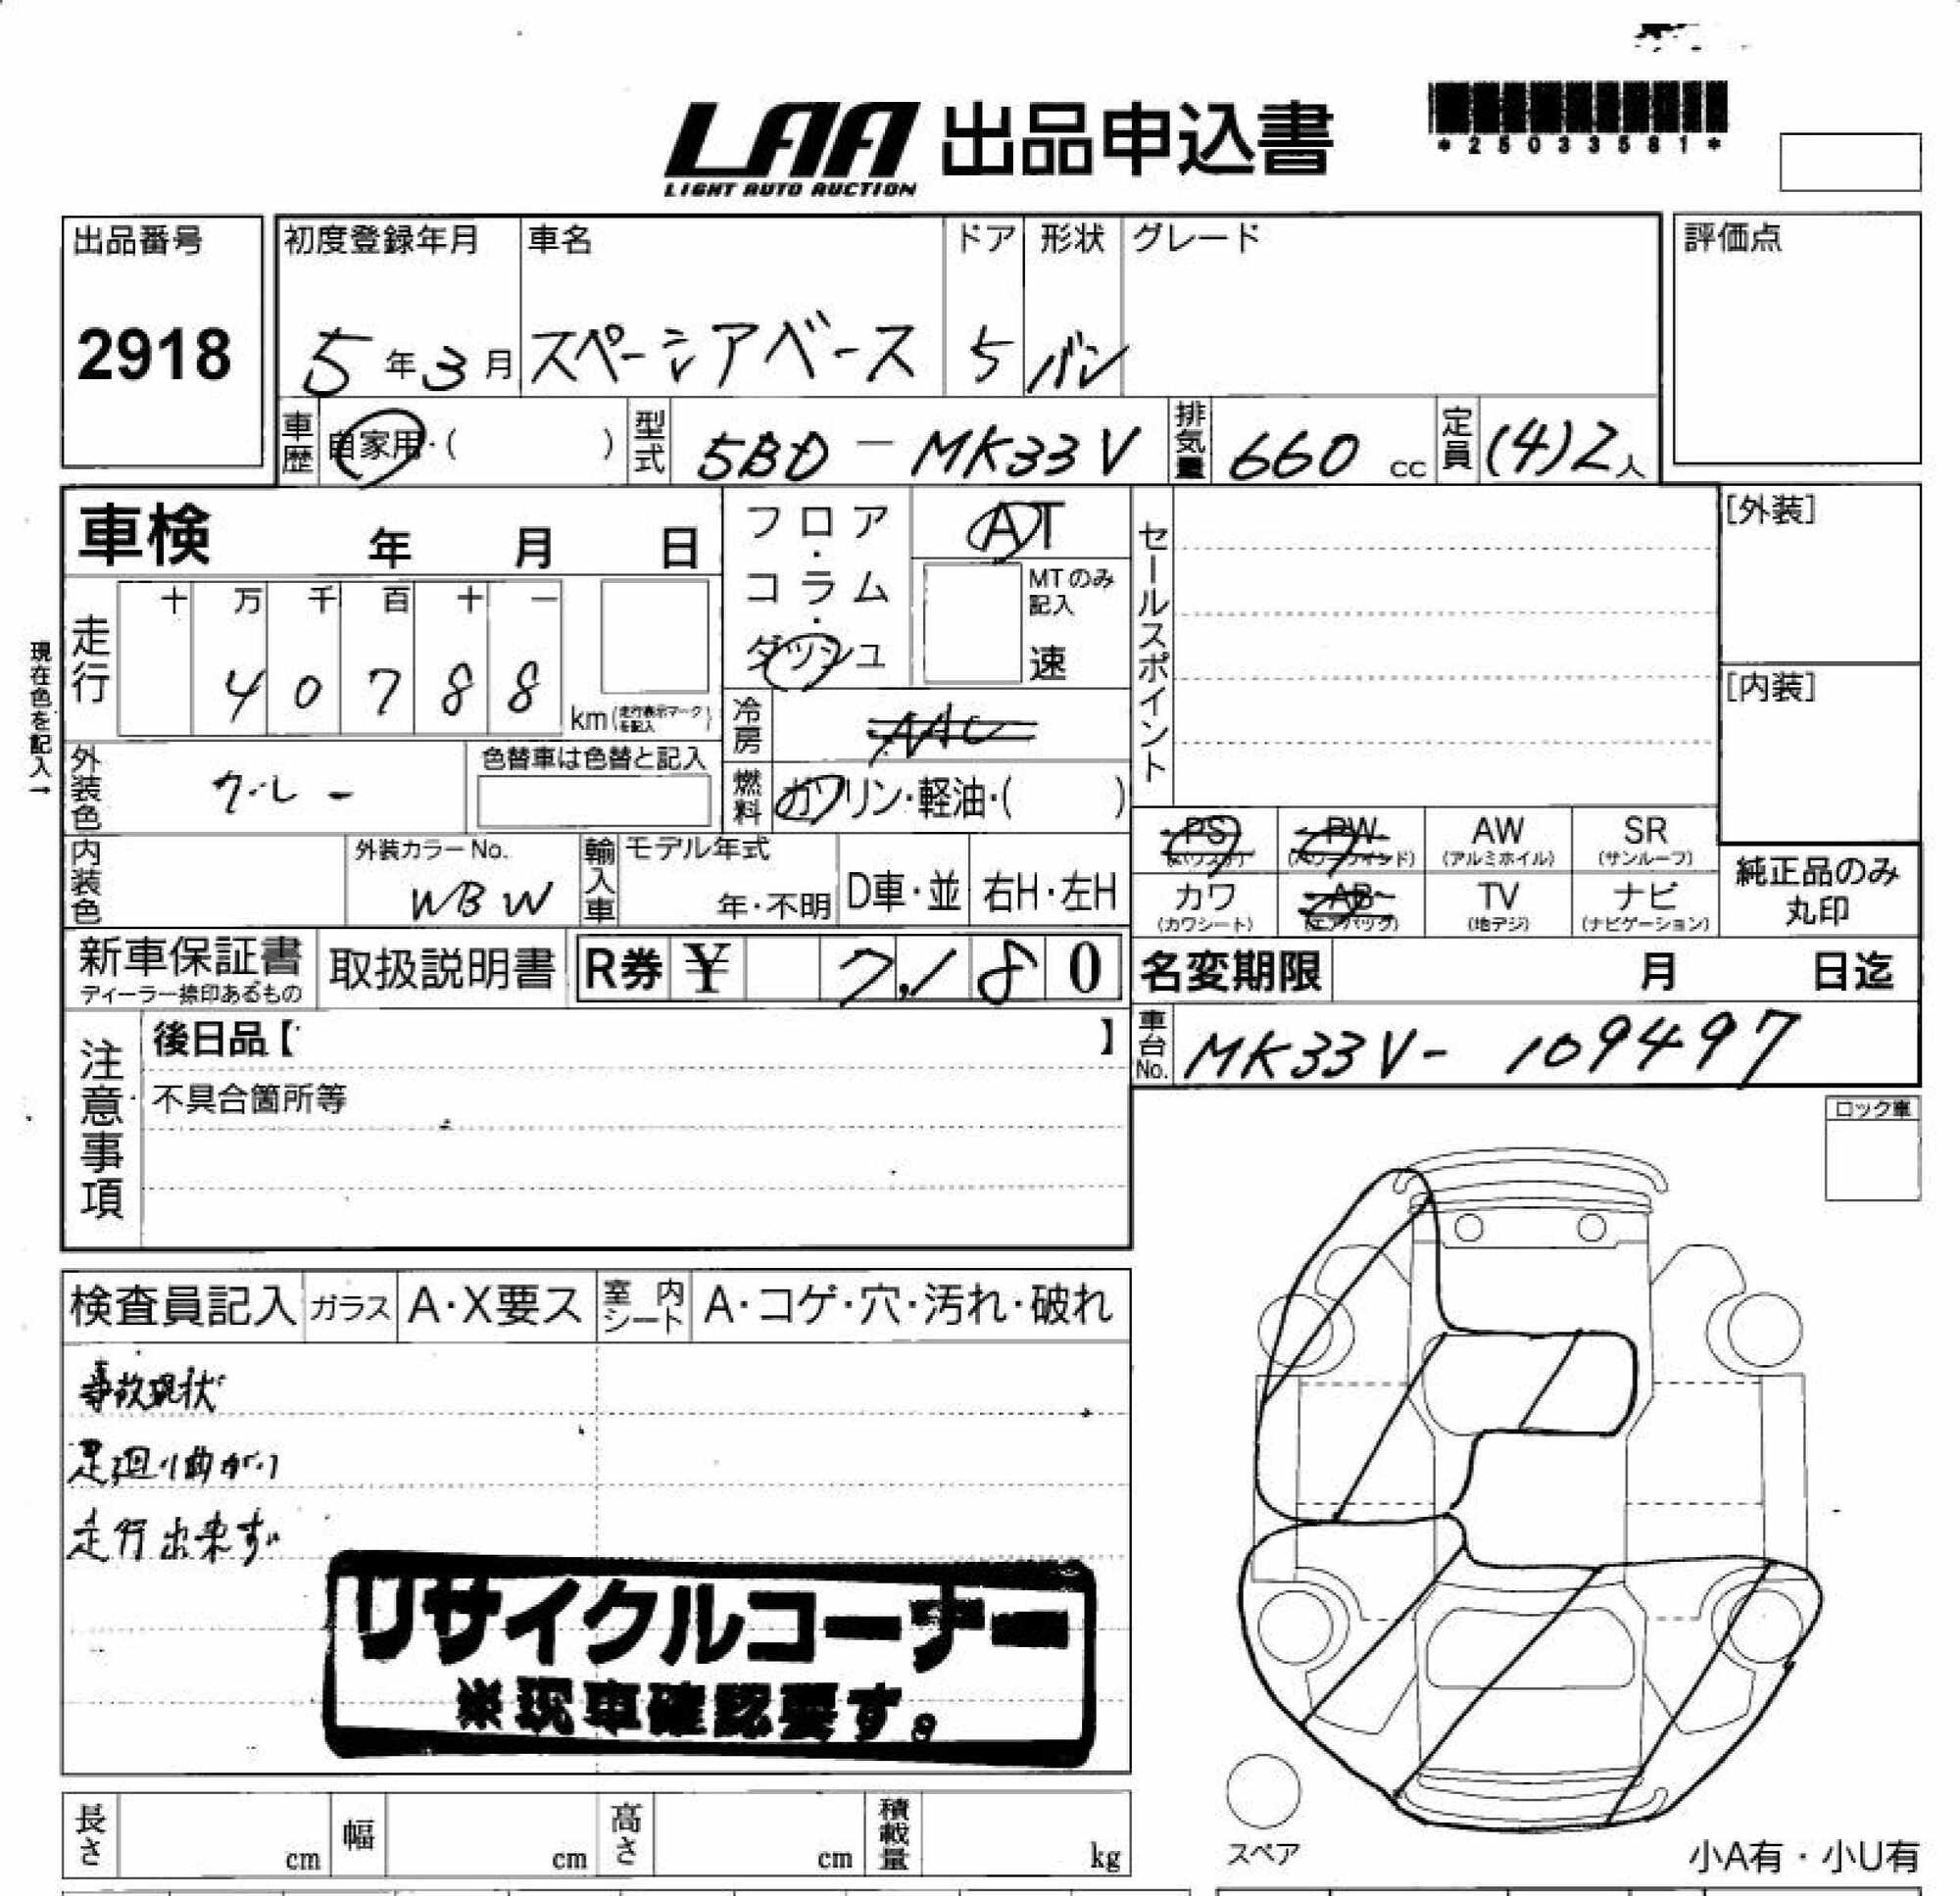 LAA 出品申込書
LIGHT AUTO AUCTION
*25033581*
出品番号
2918
初度登録年月 車名 ドア 形状 グレード
5年3月 スペーシアベース 5 バン
評価点
車歴 自家用・( ) 型式 5BD-MK33V 排気量 660cc 定員 (4)2人
車検 年 月 日
フロア・コラム・ダッシュ
AT
MTのみ記入
速
セールスポイント
[外装]
[内装]
現在色を記入→
走行 十 万 千 百 十 一
4 0 7 8 8 km(走行表示マークを記入)
冷房 AAC
外装色 グレー
色替車は色替と記入
燃料 ガソリン・軽油・( )
PS PW AW SR
(パワステ) (パワーウインド) (アルミホイル) (サンルーフ)
カワ AB TV ナビ
(カワシート) (エアバッグ) (地デジ) (ナビゲーション)
純正品のみ
丸印
内装色
外装カラーNo.
WBW
輸入車 モデル年式
年・不明 D車・並 右H・左H
新車保証書
ディーラー捺印あるもの
取扱説明書
R券 ¥ 7,180
名変期限 月 日迄
車台No. MK33V-109497
注意事項
後日品【 】
不具合箇所等
ロック車
検査員記入 ガラス A・X要ス 室内シート A・コゲ・穴・汚れ・破れ
事故現状
足廻り曲がり
走行出来ず
リサイクルコーナー
※現車確認要す。
長さ cm 幅 cm 高さ cm 積載量 kg
スペア
小A有・小U有